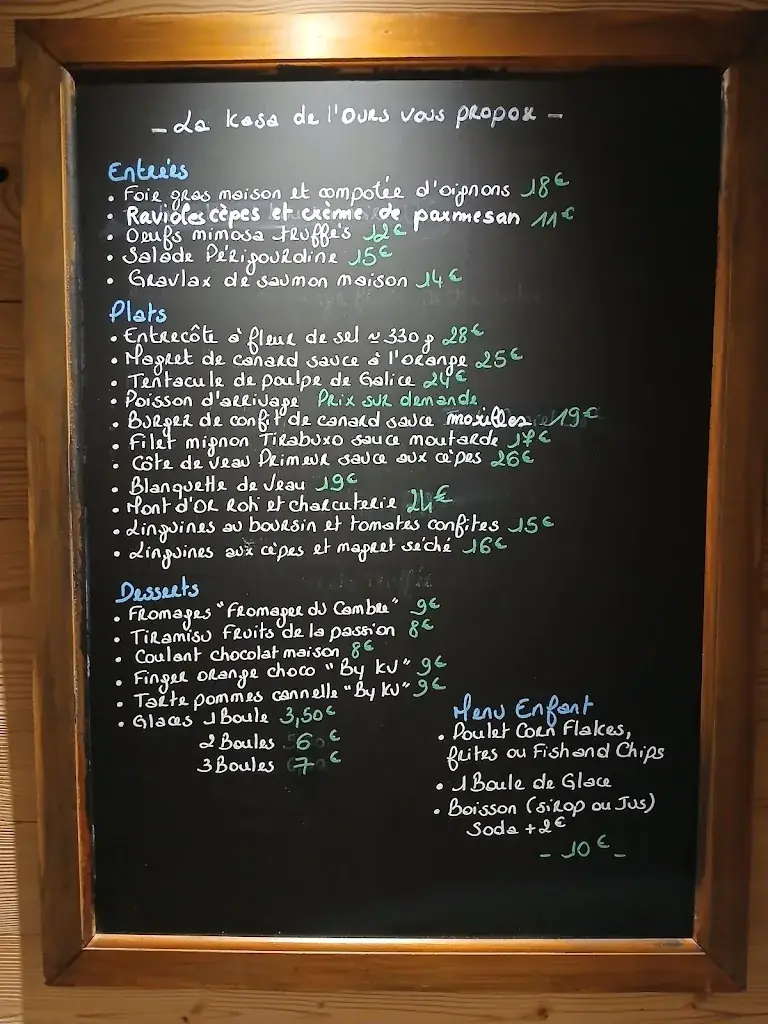 - La Kasa de l'Ours vous propose -
Entrées
• Foie gras maison et compotée d'oignons 18€
• Ravioles cèpes et crème de parmesan 11€
• Oeufs mimosa truffés 12€
• Salade Périgourdine 15€
• Gravlax de saumon maison 14€
Plats
• Entrecôte à fleur de sel ≈ 330g 28€
• Magret de canard sauce à l'orange 25€
• Tentacule de poulpe de Galice 24€
• Poisson d'arrivage Prix sur demande
• Burger de confit de canard sauce morilles 19€
• Filet mignon Tirabuxo sauce moutarde 17€
• Côte de veau Primeur sauce aux cèpes 26€
• Blanquette de veau 19€
• Mont d'Or Roti et charcuterie 24€
• Linguines au boursin et tomates confites 15€
• Linguines aux cèpes et magret séché 16€
Desserts
• Fromages "Fromager du Cambre" 9€
• Tiramisu Fruits de la passion 8€
• Coulant chocolat maison 8€
• Finger orange choco "By KU" 9€
• Tarte pommes cannelle "By KU" 9€
• Glaces 1 Boule 3,50€
2 Boules 6€
3 Boules 7€
Menu Enfant
• Poulet Corn Flakes,
frites ou Fish and Chips
• 1 Boule de Glace
• Boisson (sirop ou Jus)
Soda +2€
- 10€ -